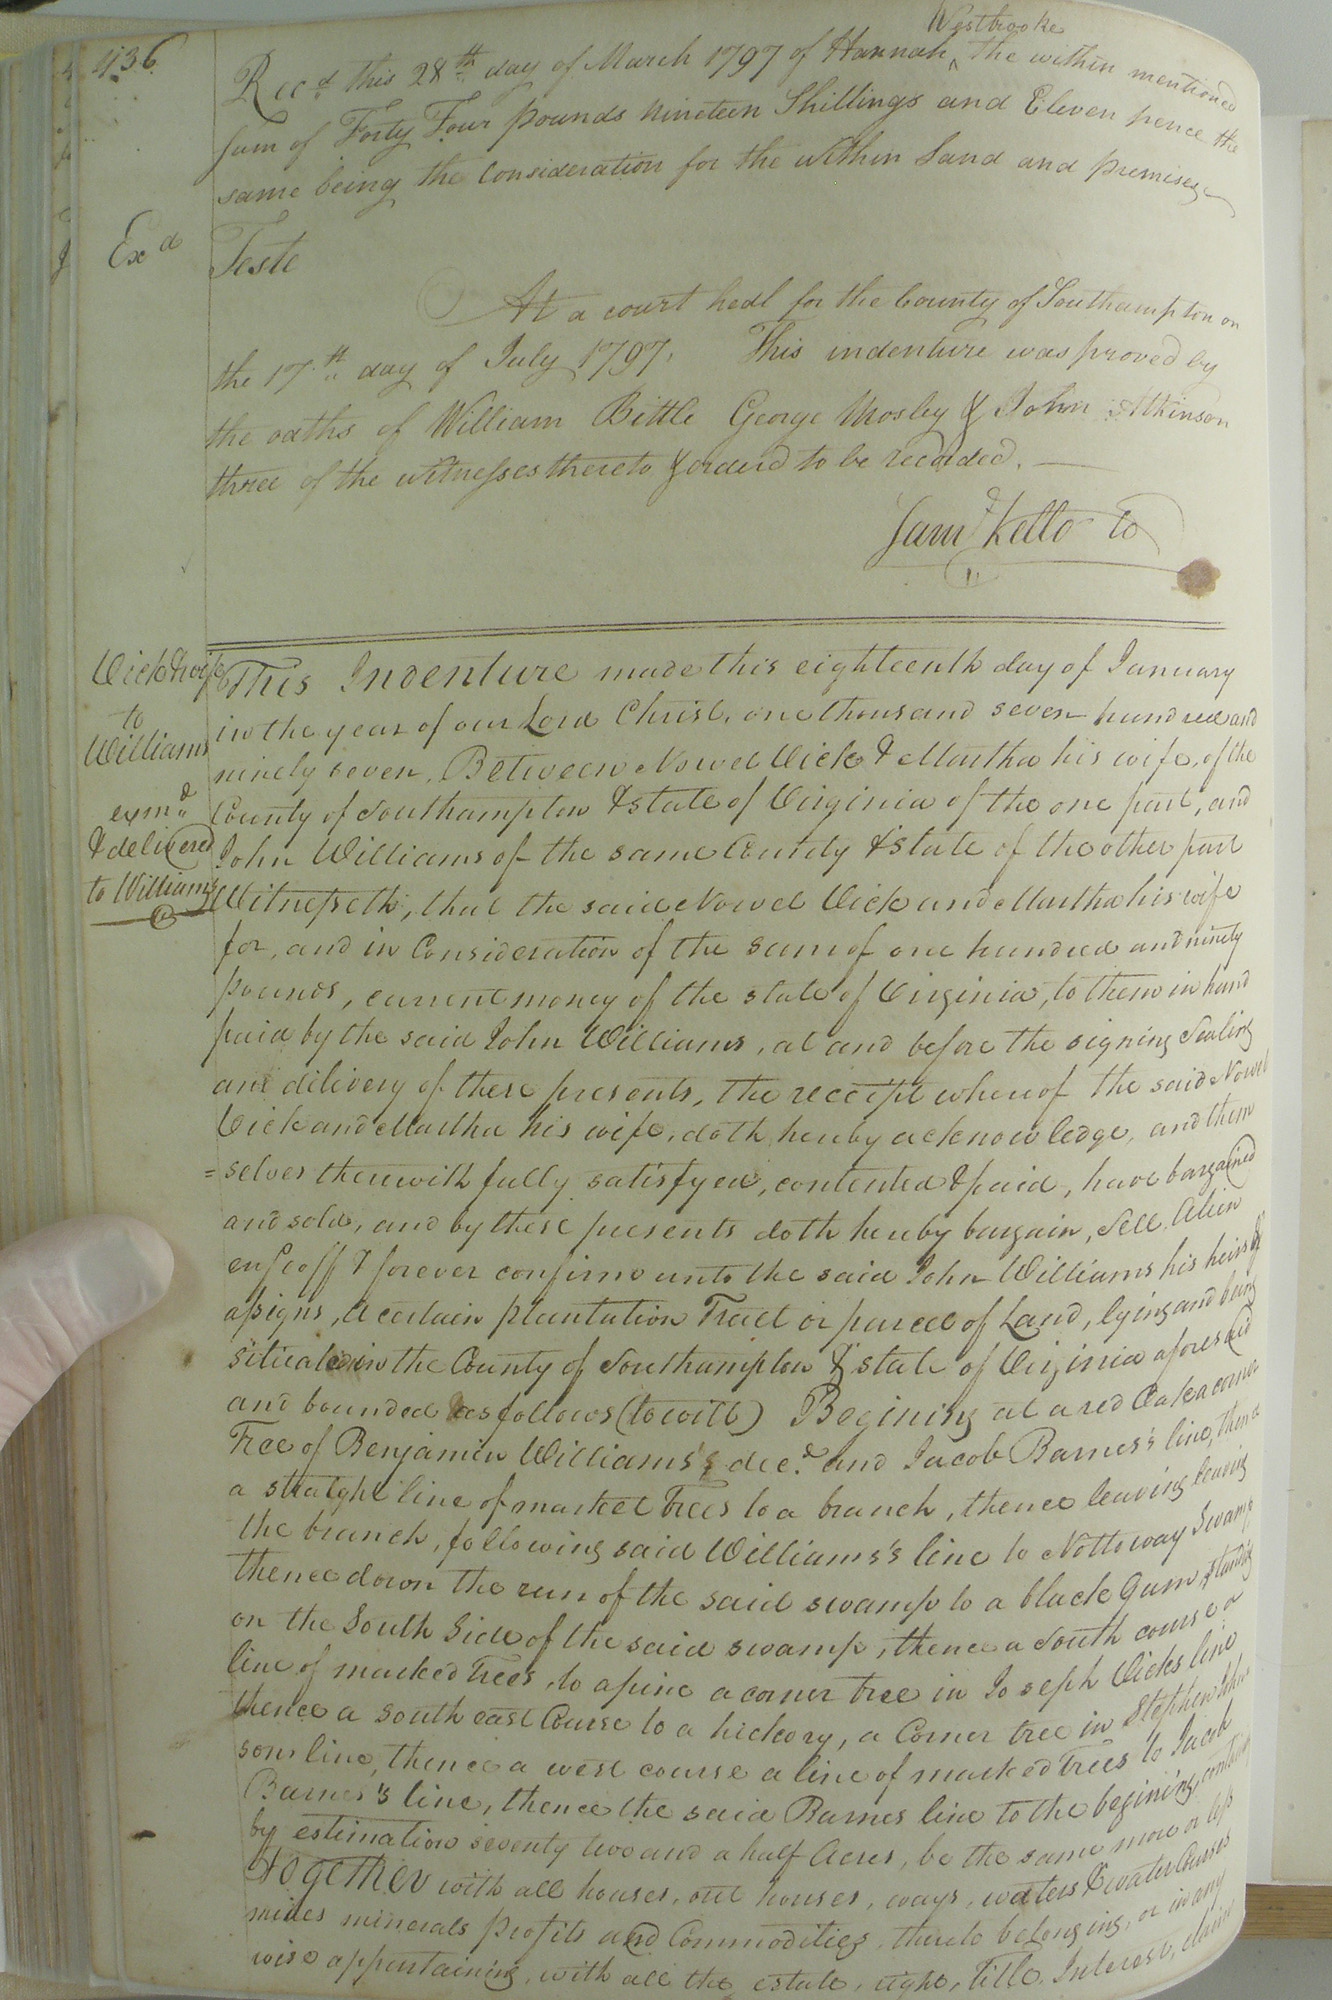 436
Westbrooke
Recd. this 28th day of March 1797 of Hannah ^ the within mentioned
sum of Forty Four pounds nineteen Shillings and Eleven pence the
same being the Consideration for the within Land and premises
Exd
Teste
At a court hedl for the County of Southampton on
the 17th day of July 1797. This indenture was proved by
the oaths of William Bittle George Mosby & John Atkinson
three of the witnesses thereto & orderd to be recorded.
Saml Kello CC
Vick & wife
to
Williams
exmd
& delivered
to Williams
This Indenture made this eighteenth day of January
in the year of our Lord Christ, one thousand seven hundred and
ninety seven, Between Nowel Vick & Martha his wife, of the
County of Southampton & state of Virginia of the one part, and
John Williams of the same County & state of the other part
Witnesseth, that the said Nowel Vick and Martha his wife
for, and in Consideration of the sum of one hundred and ninety
pounds, current money of the state of Virginia, to them in hand
paid by the said John Williams, at and before the signing Sealing
and dilivery of these presents, the receipt whereof the said Nowel
Vick and Martha his wife, doth hereby acknowledge, and them
=selves therewith fully satisfyed, contented & paid, have bargained
and sold, and by these presents doth hereby bargain, Sell, Alien
enfeoff & forever confirm unto the said John Williams his heirs &
assigns, a certain plantation Tract or parcel of Land, lying and being
situated in the County of Southampton & state of Virginia aforesaid
and bounded as follows (to wit) Begining at a red Oak a corner
Tree of Benjamin Williams's decd. and Jacob Barnes's line, thence
a straight line of marked Trees to a branch, thence leaving leaving
the branch, following said Williams's line to Nottoway Swamp
thence down the run of the said swamp to a black Gum, standing
on the South Side of the said swamp, thence a South course a
line of marked Trees, to a pine a corner tree in Joseph Vicks line
thence a south east Course to a hickory, a Corner tree in Stephen John
sons line, thence a west course a line of marked Trees to Jacob
Barnes's line, thence the said Barnes line to the begining, containing
by estimation seventy two and a half Acres, be the same more or less
Together with all houses, out houses, ways, waters & water Courses
mines minerals profits and Commodities, thereto belonging, or in any
wise appertaining, with all the estate, right, Title, Interest, claim